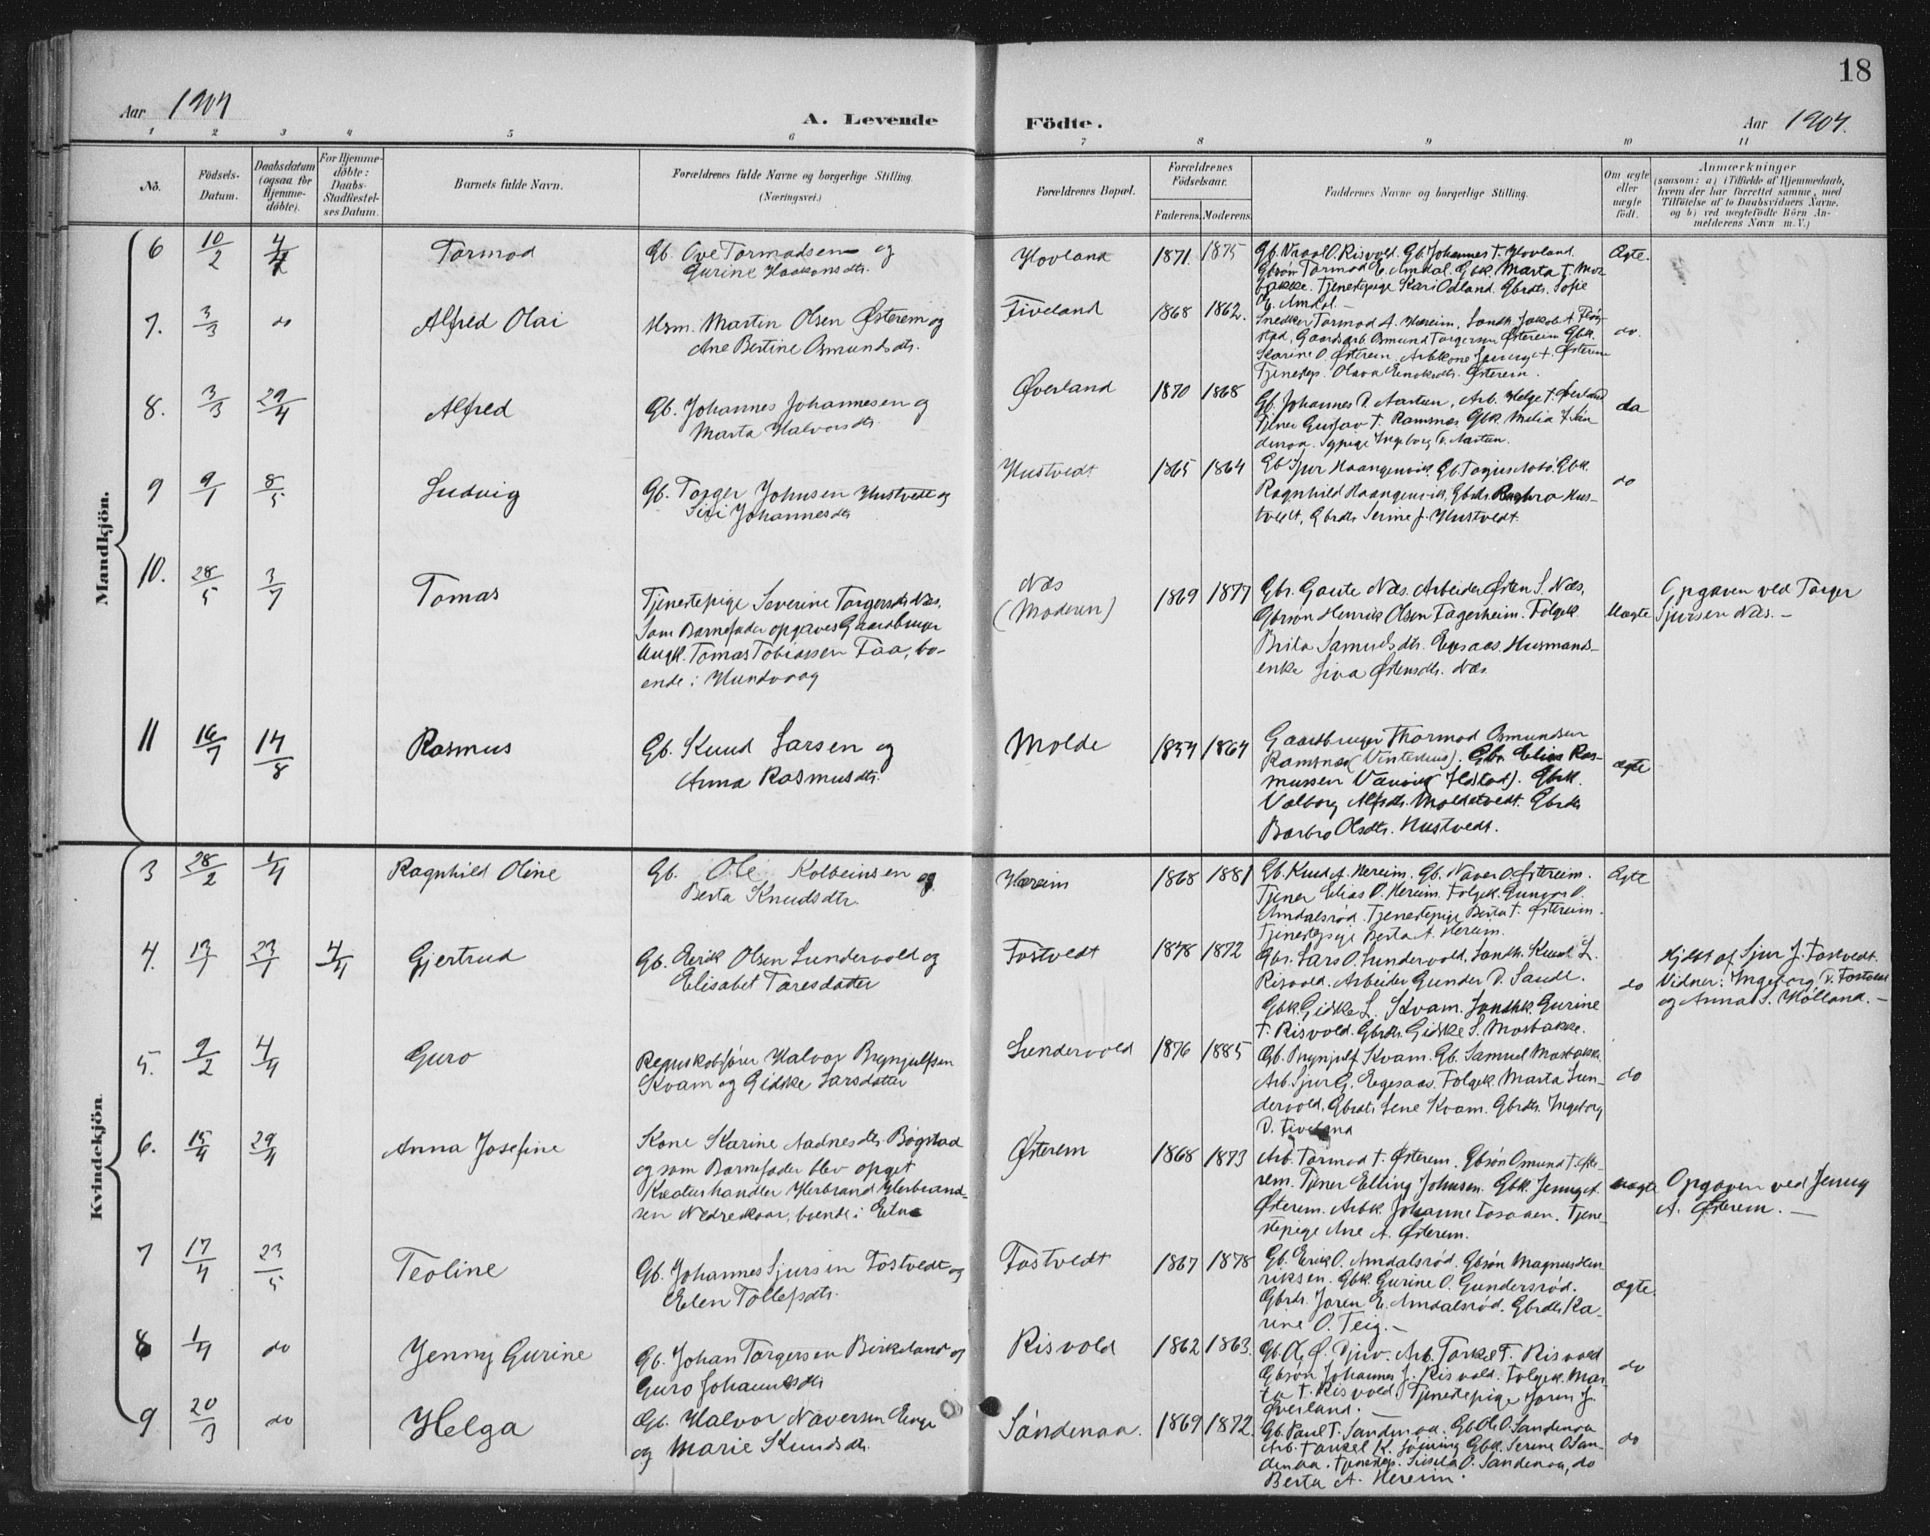 18
Aar 1904
A. Levende
Födte.
Aar 1904.
1 2 3 4 5 6 7 8 9 10 11
No.
Födsels-
Datum.
Daabsdatum
(ogsaa for
Hjemme-
döbte).
For Hjemme-
döbte:
Daabs-
Stadfæstel-
ses Datum.
Barnets fulde Navn.
Forældrenes fulde Navne og borgerlige Stilling.
(Næringsvei.)
Forældrenes Bopæl.
Forældrenes
Födselsaar.
Faderens.
Moderens.
Faddernes Navne og borgerlige Stilling.
Om ægte
eller
uægte
födt.
Anmærkninger
(saasom: a) i Tilfælde af Hjemmedaab,
hvem der har forrettet samme, med
Tilföielse af to Daabsvidners Navne.
og b) ved uægtefödte Börn An-
melderens Navn m. V.)
Mandkjön.
6 10/2 4/4 Tormod
Gb. Ove Tormodsen og
Gurine Haakonsdtr.
Hovland 1871. 1875
Gb. Vraal O. Risvold. Gb. Johannes T. Hovland.
Gbrsön Tormod E. Amdal. Gbk. Marta T. Mos-
bakke. Tjenestepige Kari Odland. Gbrdtr. Sofie
E. Amdal. –
Ægte.
7. 3/3 do Alfred Olai
Hsm. Martin Olsen Østerem og
Ane Bertine Osmundsdtr.
Fiveland 1868 1862.
Snedker Tormod A. Hereim, Landh. Jakob A.
stad, Gaardarb. Osmund Torgersen Østerem Gbk.
Karine O. Østerem, Arbkone Jenny A. Østerem
Tjenestep. Olava Enoksdtr. Østerem.
do.
8. 3/3 29/4 Alfred
Gb. Johannes Johannesen og
Marta Halvorsdtr.
Øverland 1870 1868
Gb. Johannes T. Aartun, Arb. Helge T. Øverland
Tjener Gustav T. Ramsnes Gbk. Malia T. Sön-
denaa. Sypige Ingeborg T. Aartun.
do
9 9/1 8/5 Ludvig
Gb. Torger Johnsen Hustvedt og
Siri Johannesdtr
Hustvedt 1865 1864
Gb Sjur Haangensvik. Gb. Torjus Aabö. Gbk.
Ragnhild Haangensvik, Gbrdtr. Barbro Hus-
tvedt, Gbrdtr Serine J. Hustvedt.
do
10. 28/5 3/7 Tomas
Tjenestepige Severine Torgersdtr Næs.
Som Barnefader opgaves Gaardbruger
Ungk. Tomas Tobiassen Faa, bo-
ende i Hundvaag
Næs
(Moderen)
1869 1877
Gbr. Gaute Næs. Arbeider Østen S. Næs.
Gbrsön Henrik Olsen Fagerheim. Folgek.
Brita Samuelsdtr. Egesaas. Husmands-
enke Siva Østensdtr. Næs.
Uægte
Opgaven ved Torger
Sjursen Næs. –
11 16/7 14/8 Rasmus
Gb. Knud Larsen og
Anna Rasmusdtr.
Molde 1854 1864
Gaardbruger Thormod Osmundsen
Ramsnes (Vinterhus). Gbr Elias Ras-
mussen Vanvik (Hostad). Gbrk.
Valborg Alfsdtr. Moldetvedt. Gbrdtr
Barbro Olsdtr. Hustvedt.
ægte
Kvindekjön.
3 28/2 1/4 Ragnhild Oline
Gb. Ole Kolbeinsen og
Berta Knudsdtr.
Hereim 1868 1881
Gb. Knud A. Hereim. Gb. Naver O. Østreim.
Tjener Elias O. Hereim. Folgek. Gunvor O.
Amdalsröd. Tjenestepige Berta T. Østreim.
Tjenestepige Berta A. Hereim.
Ægte
4. 13/1 23/1 4/4 Gjertrud
Gb. Eerik Olsen Sundervold og
Elisabet Taresdatter
Fostvedt 1878 1872
Gbr. Lars O. Sundervold. Landh. Knud L.
Risvold. Arbeider Gunder D. Saudl.
Gbk. Gidske L. Kvam. Landhk. Gurine
T. Risvold. Gbrdtr. Gidske S. Mosbakke.
do
Hjdbt af Sjur J. Fostvedt.
Vidner: Ingeborg T. Fostvedt
og Anna S. Hölland. –
5. 9/2 4/4 Guro
Regnskabsförer Halvor Brynjulfsen
Kvam og Gidske Larsdatter
Sundervold 1876 1885
Gb. Brynjulf Kvam. Gb. Samuel Mosbakke
Arb. Sjur G. Egesaas. Folgek. Marta Sun-
dervold. Gbrdtr Lene Kvam. Gbrdtr. Ingeborg
D. Fiveland
do
6. 15/4 29/4 Anna Josefine
Kone Karine Aadnesdtr Bögstad
og som Barnefader blev opget
Kreaturhandler Herbrand Herbrand-
sen Nedrevaar, boende i Etne
Østerem 1868 1873
Arb. Tormod T. Østerem. Gbsön Osmund T. Øste-
rem. Tjener Elling Johnsen. Gbk. Jenny A.
Østerem. Arbk. Johanne Fosaaen. Tjene-
stepige Ane A. Østerem.
uægte
Opgaven ved Jenny
A. Østerem. –
7 17/4 23/5 Teoline
Gb. Johannes Sjursen Fostvedt og
Elen Tollefsdtr.
Fostvedt 1867 1878
Gb. Erik O. Amdalsröd. Gbsön Magnus Hen-
riksen. Gbk. Gurine O. Gundersröd.
Gbrdr. Joren E. Amdalsröd. Gbrdtr Ka-
rine O. Teig. –
ægte.
8 1/4 do Jenny Gurine
Gb. Johan Torgersen Birkeland og
Guro Johannesdtr
Risvold 1862 1863.
Arb. Torkel T. Risvold
Gbsön Johannes J. Risvold. Folgek. Mar-
ta T. Risvold. Tjenestepige Joren J.
Øverland. –
do
9 20/3 do Helga
Gb. Halvor Naversen Enge
og Marie Knudsdtr.
Söndenaa. 1869 1872.
Gb. Paul T. Sandenaa. Gb Ole O. Sandenaa
Arb. Torkel K. Gbk. Serene O San-
denaa. Tjenestep. Sissela O. Sandenaa, do
Berta A. Hereim.
do